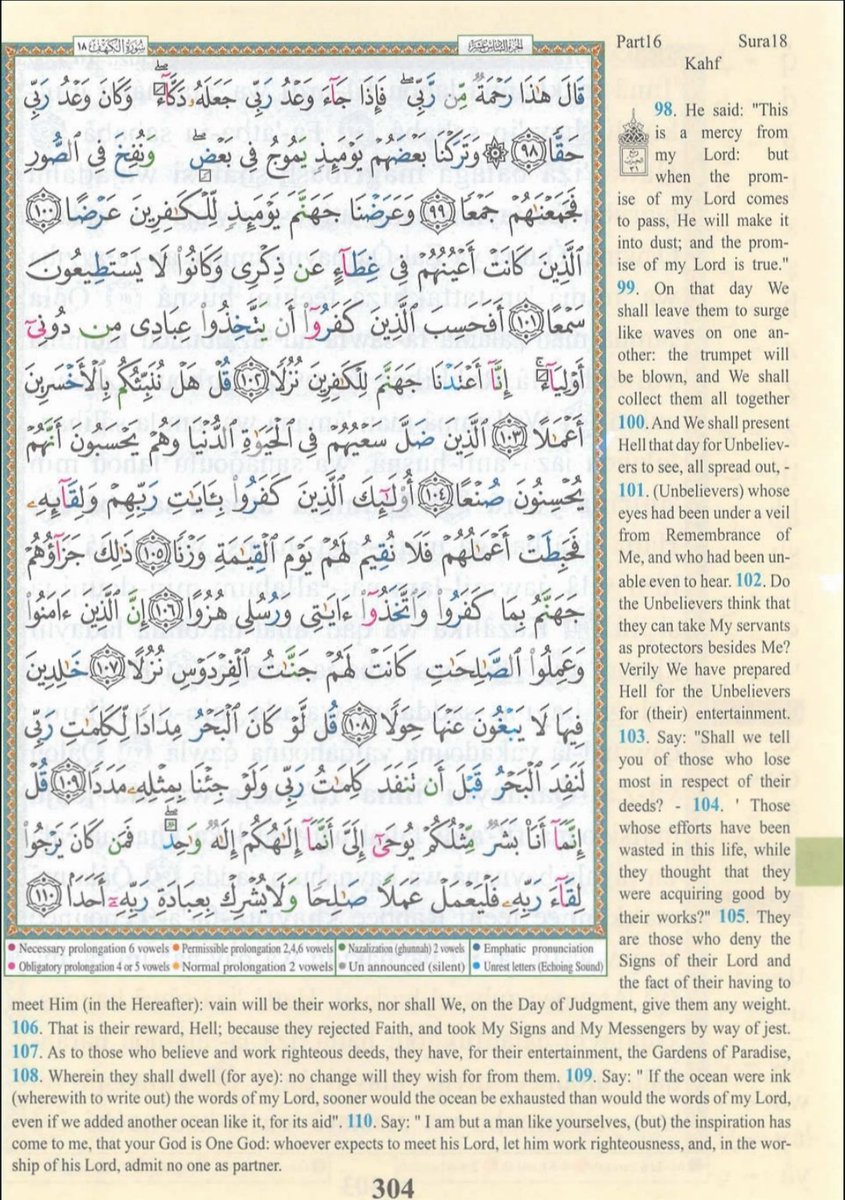 سُورَةُ الكَهْفِ ١٨
الجزء السادس عشر
Part16 Sura18
Kahf
قَالَ هَٰذَا رَحْمَةٌ مِّن رَّبِّي ۖ فَإِذَا جَآءَ وَعْدُ رَبِّي جَعَلَهُۥ دَكَّآءَ ۖ وَكَانَ وَعْدُ رَبِّي
حَقًّا ﴿٩٨﴾ ۞ وَتَرَكْنَا بَعْضَهُمْ يَوْمَئِذٍ يَمُوجُ فِي بَعْضٍ ۖ وَنُفِخَ فِي الصُّورِ
فَجَمَعْنَٰهُمْ جَمْعًا ﴿٩٩﴾ وَعَرَضْنَا جَهَنَّمَ يَوْمَئِذٍ لِّلْكَٰفِرِينَ عَرْضًا ﴿١٠٠﴾
ٱلَّذِينَ كَانَتْ أَعْيُنُهُمْ فِي غِطَآءٍ عَن ذِكْرِي وَكَانُوا۟ لَا يَسْتَطِيعُونَ
سَمْعًا ﴿١٠١﴾ أَفَحَسِبَ ٱلَّذِينَ كَفَرُوٓا۟ أَن يَتَّخِذُوا۟ عِبَادِي مِن دُونِيٓ
أَوْلِيَآءَ ۚ إِنَّآ أَعْتَدْنَا جَهَنَّمَ لِلْكَٰفِرِينَ نُزُلًا ﴿١٠٢﴾ قُلْ هَلْ نُنَبِّئُكُم بِٱلْأَخْسَرِينَ
أَعْمَٰلًا ﴿١٠٣﴾ ٱلَّذِينَ ضَلَّ سَعْيُهُمْ فِي ٱلْحَيَوٰةِ ٱلدُّنْيَا وَهُمْ يَحْسَبُونَ أَنَّهُمْ
يُحْسِنُونَ صُنْعًا ﴿١٠٤﴾ أُو۟لَٰٓئِكَ ٱلَّذِينَ كَفَرُوا۟ بِـَٔايَٰتِ رَبِّهِمْ وَلِقَآئِهِۦ
فَحَبِطَتْ أَعْمَٰلُهُمْ فَلَا نُقِيمُ لَهُمْ يَوْمَ ٱلْقِيَٰمَةِ وَزْنًا ﴿١٠٥﴾ ذَٰلِكَ جَزَآؤُهُمْ
جَهَنَّمُ بِمَا كَفَرُوا۟ وَٱتَّخَذُوٓا۟ ءَايَٰتِي وَرُسُلِي هُزُوًا ﴿١٠٦﴾ إِنَّ ٱلَّذِينَ ءَامَنُوا۟
وَعَمِلُوا۟ ٱلصَّٰلِحَٰتِ كَانَتْ لَهُمْ جَنَّٰتُ ٱلْفِرْدَوْسِ نُزُلًا ﴿١٠٧﴾ خَٰلِدِينَ
فِيهَا لَا يَبْغُونَ عَنْهَا حِوَلًا ﴿١٠٨﴾ قُل لَّوْ كَانَ ٱلْبَحْرُ مِدَادًا لِّكَلِمَٰتِ رَبِّي
لَنَفِدَ ٱلْبَحْرُ قَبْلَ أَن تَنفَدَ كَلِمَٰتُ رَبِّي وَلَوْ جِئْنَا بِمِثْلِهِۦ مَدَدًا ﴿١٠٩﴾ قُلْ
إِنَّمَآ أَنَا۠ بَشَرٌ مِّثْلُكُمْ يُوحَىٰٓ إِلَيَّ أَنَّمَآ إِلَٰهُكُمْ إِلَٰهٌ وَٰحِدٌ ۖ فَمَن كَانَ يَرْجُوا۟
لِقَآءَ رَبِّهِۦ فَلْيَعْمَلْ عَمَلًا صَٰلِحًا وَلَا يُشْرِكْ بِعِبَادَةِ رَبِّهِۦٓ أَحَدًا ﴿١١٠﴾
Necessary prolongation 6 vowels Permissible prolongation 2,4,6 vowels Nazalization (ghunnah) 2 vowels Emphatic pronunciation
Obligatory prolongation 4 or 5 vowels Normal prolongation 2 vowels Un announced (silent) Unrest letters (Echoing Sound)
98. He said: "This
is a mercy from
my Lord: but
when the prom-
ise of my Lord comes
to pass, He will make it
into dust; and the prom-
ise of my Lord is true."
99. On that day We
shall leave them to surge
like waves on one an-
other: the trumpet will
be blown, and We shall
collect them all together
100. And We shall present
Hell that day for Unbeliev-
ers to see, all spread out, -
101. (Unbelievers) whose
eyes had been under a veil
from Remembrance of
Me, and who had been un-
able even to hear. 102. Do
the Unbelievers think that
they can take My servants
as protectors besides Me?
Verily We have prepared
Hell for the Unbelievers
for (their) entertainment.
103. Say: "Shall we tell
you of those who lose
most in respect of their
deeds? - 104. ' Those
whose efforts have been
wasted in this life, while
they thought that they
were acquiring good by
their works?" 105. They
are those who deny the
Signs of their Lord and
the fact of their having to
meet Him (in the Hereafter): vain will be their works, nor shall We, on the Day of Judgment, give them any weight.
106. That is their reward, Hell; because they rejected Faith, and took My Signs and My Messengers by way of jest.
107. As to those who believe and work righteous deeds, they have, for their entertainment, the Gardens of Paradise,
108. Wherein they shall dwell (for aye): no change will they wish for from them. 109. Say: " If the ocean were ink
(wherewith to write out) the words of my Lord, sooner would the ocean be exhausted than would the words of my Lord,
even if we added another ocean like it, for its aid". 110. Say: " I am but a man like yourselves, (but) the inspiration has
come to me, that your God is One God: whoever expects to meet his Lord, let him work righteousness, and, in the wor-
ship of his Lord, admit no one as partner.
304